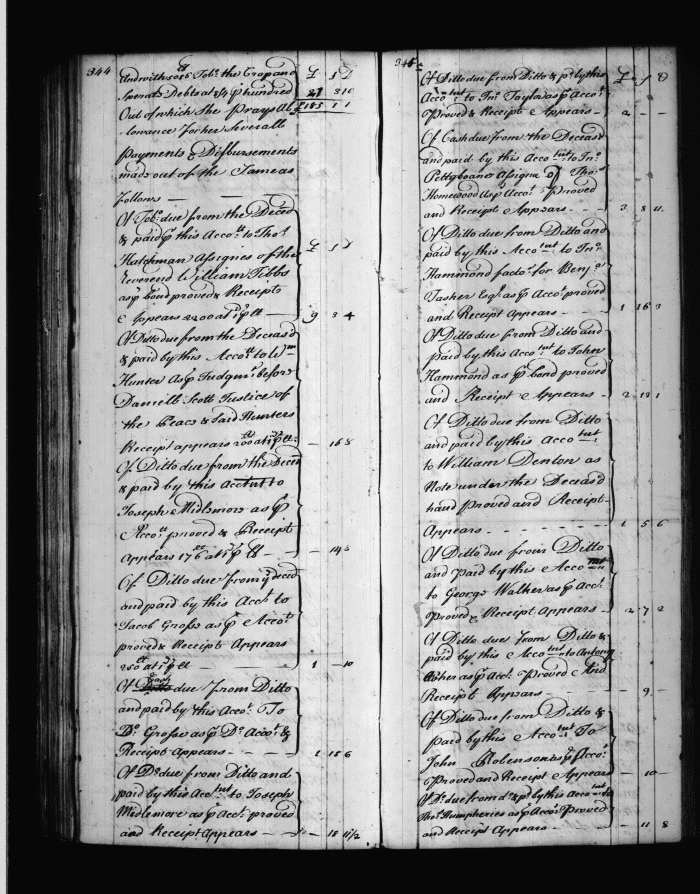 344
And with 5026 Tob.o the Crop and £ S D
Sperate Debts at 3/4 p hundred 27 8 10
Out of which She Prays Al £185 1 1
lowance for her Severall
Payments & Disbursements
made out of the Same as
follows
Of Tob.o due from the Deced
& paid p this Acco.tt to Tho.s
Hatchman Assignee of the £ S D
Reverend William Tibbs
as p bond proved & Receipts
Appears 2200 at 1 p tt 9 3 4
Of Ditto due from the Deceasd
& paid by this Acco.tt to W.m
Hunter As p Judgmt before
Daniell Scott Justice of
the Peace & Said Hunters
Receipt appears 200 at 1 p tt - 16 8
Of Ditto due from the Deced
& paid by this Acctnt to
Joseph Midlemore as p
Acco.tt proved & Receipt
Appears 176 at 1 p tt - 14 8
Of Ditto due from ye deced
and paid by this Acct to
Jacob Gross as p Accot
proved & Receipt Appears
250 at 1 p tt 1 - 10
Of Cash due from Ditto
and paid by this Accot To
Do Gross as p Do Accot &
Receipt Appears 1 15 6
Of Do due from Ditto and
paid by this Acctnt to Joseph
Medlemore as p Acct proved
and Receipt Appears - 18 11/2
345
Of Ditto due from Ditto & pd by this £ S D
Acco.tnt to Jno Tayla as p Accot
Proved & Receipt Appears 2 - -
Of Cash due from the Deceasd
and paid by this Acco.tnt to Jno
Pettgboane Assignee of Tho.s
Homewood as p Accot Proved
and Receipt Appears 3 8 11
Of Ditto due from Ditto and
paid by this Acco.tnt to Jno
Hammond factor for Benj.a
Tasher Esqr as p Accot proved
and Receipt Appears 1 16 9
Of Ditto due from Ditto and
paid by this Acco.tnt to John
Hammond as p bond proved
and Receipt Appears 2 19 1
Of Ditto due from Ditto
and paid by this Acco tnt
to William Denton as
Note under the Deceasd
hand Proved and Receipt
Appears 1 5 6
Of Ditto due from Ditto
and Paid by this Acco tnt
to George Walker as p Acct
Proved & Receipt Appears 2 7 2
Of Ditto due from Ditto &
paid by this Acco tnt to Antony
Asher as p Acct Proved And
Receipt Appears - 9 -
Of Ditto due from Ditto &
Paid by this Accot To
John Roberson as p Accot
Proved and Receipt Appears - 10 -
Of Do due from do & pd by this Acco tnt to
Tho.s Humpheries as p Accot Proved
and Receipt Appears - 11 8